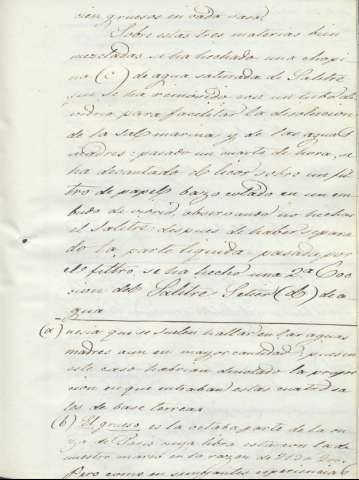 cien gruesos en cada vara.
Sobre estas tres materias bien
mezcladas se ha hechado una chopi
na (c) de agua saturada de Salitre
que se ha removido con un tubo de
vidrio para facilitar la disolucion
de la Sal marina y de las aguas
madres: pasado un quarto de hora, se
ha decantado el licor sobre un fil
tro de papel bazo colado en un em
budo de vidrio, observando no hechar
el Salitre: despues de haber separa
do la parte liquida pasada por
el filtro, se ha hecho una 2ª Coc
cion del Salitre Señor (d) de a
gua
(a) nesa que se suelen hallar en las aguas
madres aun en mayor cantidad pues en
este caso habrian denotado la propor
cion en que entraban estas cuatro sa
les de base terrea.
(b) El grueso es la octaba parte de la on
za de Paris cuya libra está con la de
nuestro marco en la razon de
Pero como en semejantes experiencias